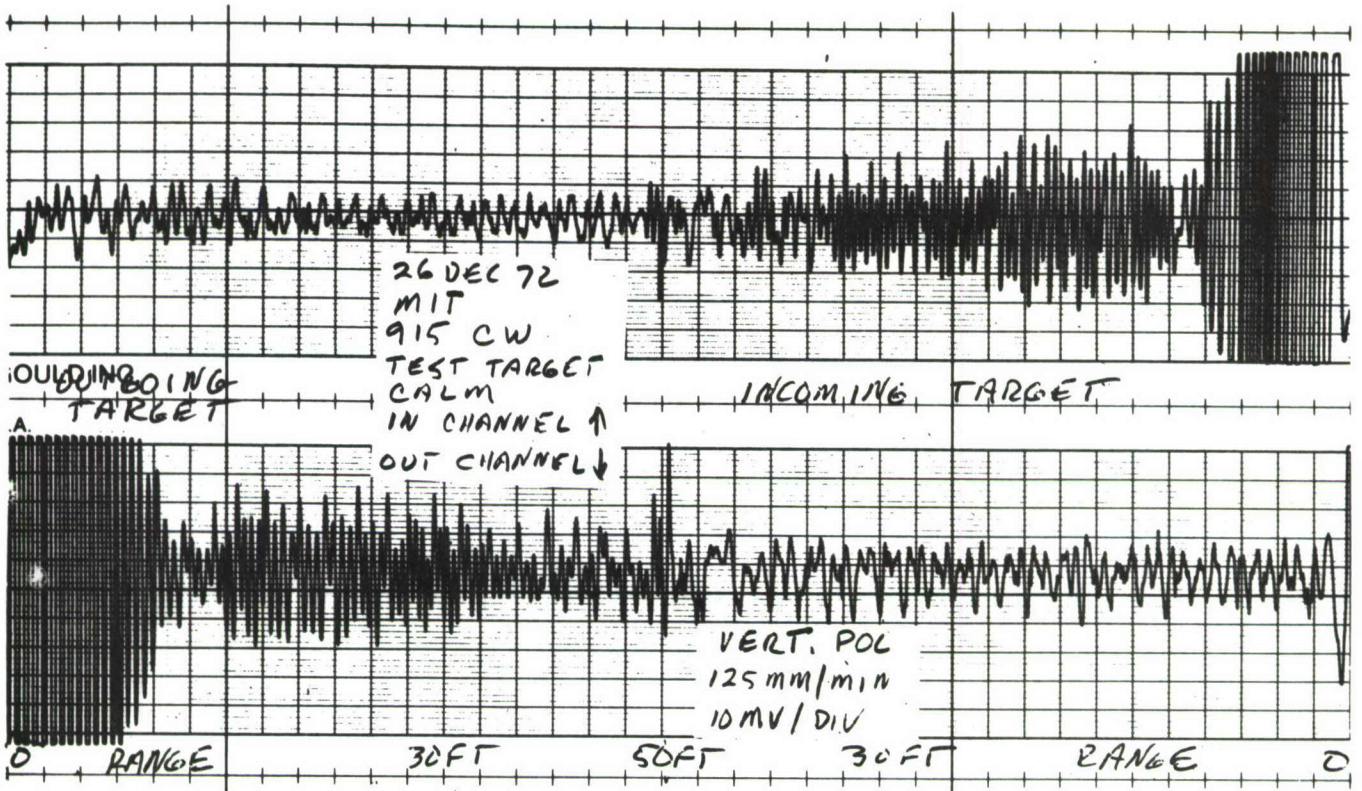 26 DEC 72
MIT
915 CW
TEST TARGET
CALM
IN CHANNEL ↑
OUT CHANNEL ↓
OUTGOING
TARGET
INCOMING TARGET
A.
VERT. POL
125 mm/min
10 MV/DIV
0 RANGE 30FT 50FT 30FT RANGE 0